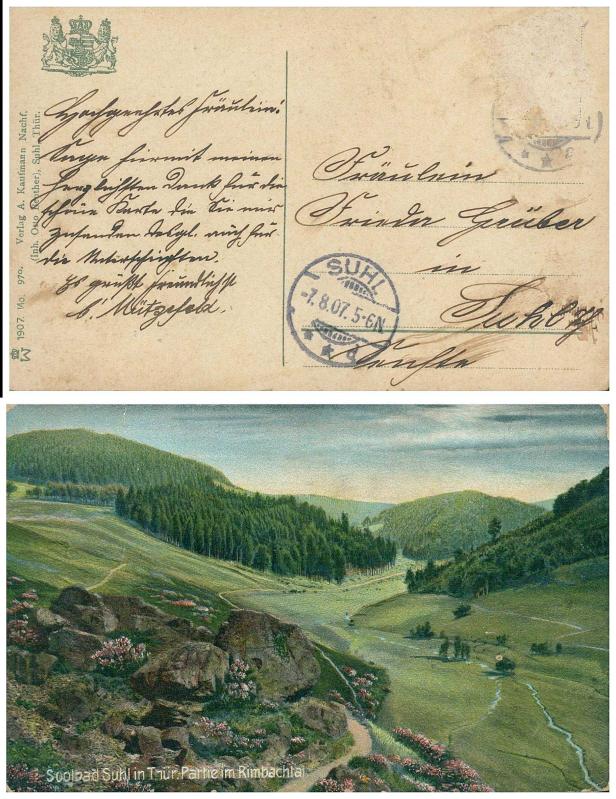 Hochgeehrtes Fräulein!
Sage hiermit meinen
herzlichsten Dank für die
schöne Karte die Sie mir
zusandten desgl. auch für
die Unterschriften.
Es grüßt freundlichst
Verlag A. Kaufmann Nachf.
(Inh. Otto Reuther), Suhl, Thür.
1907. No. 970.
Fräulein
Frieda Grüber
in
Suhl
SUHL
-7.8.07.5-6N
Soolbad Suhl in Thür. Partie im Rimbachtal